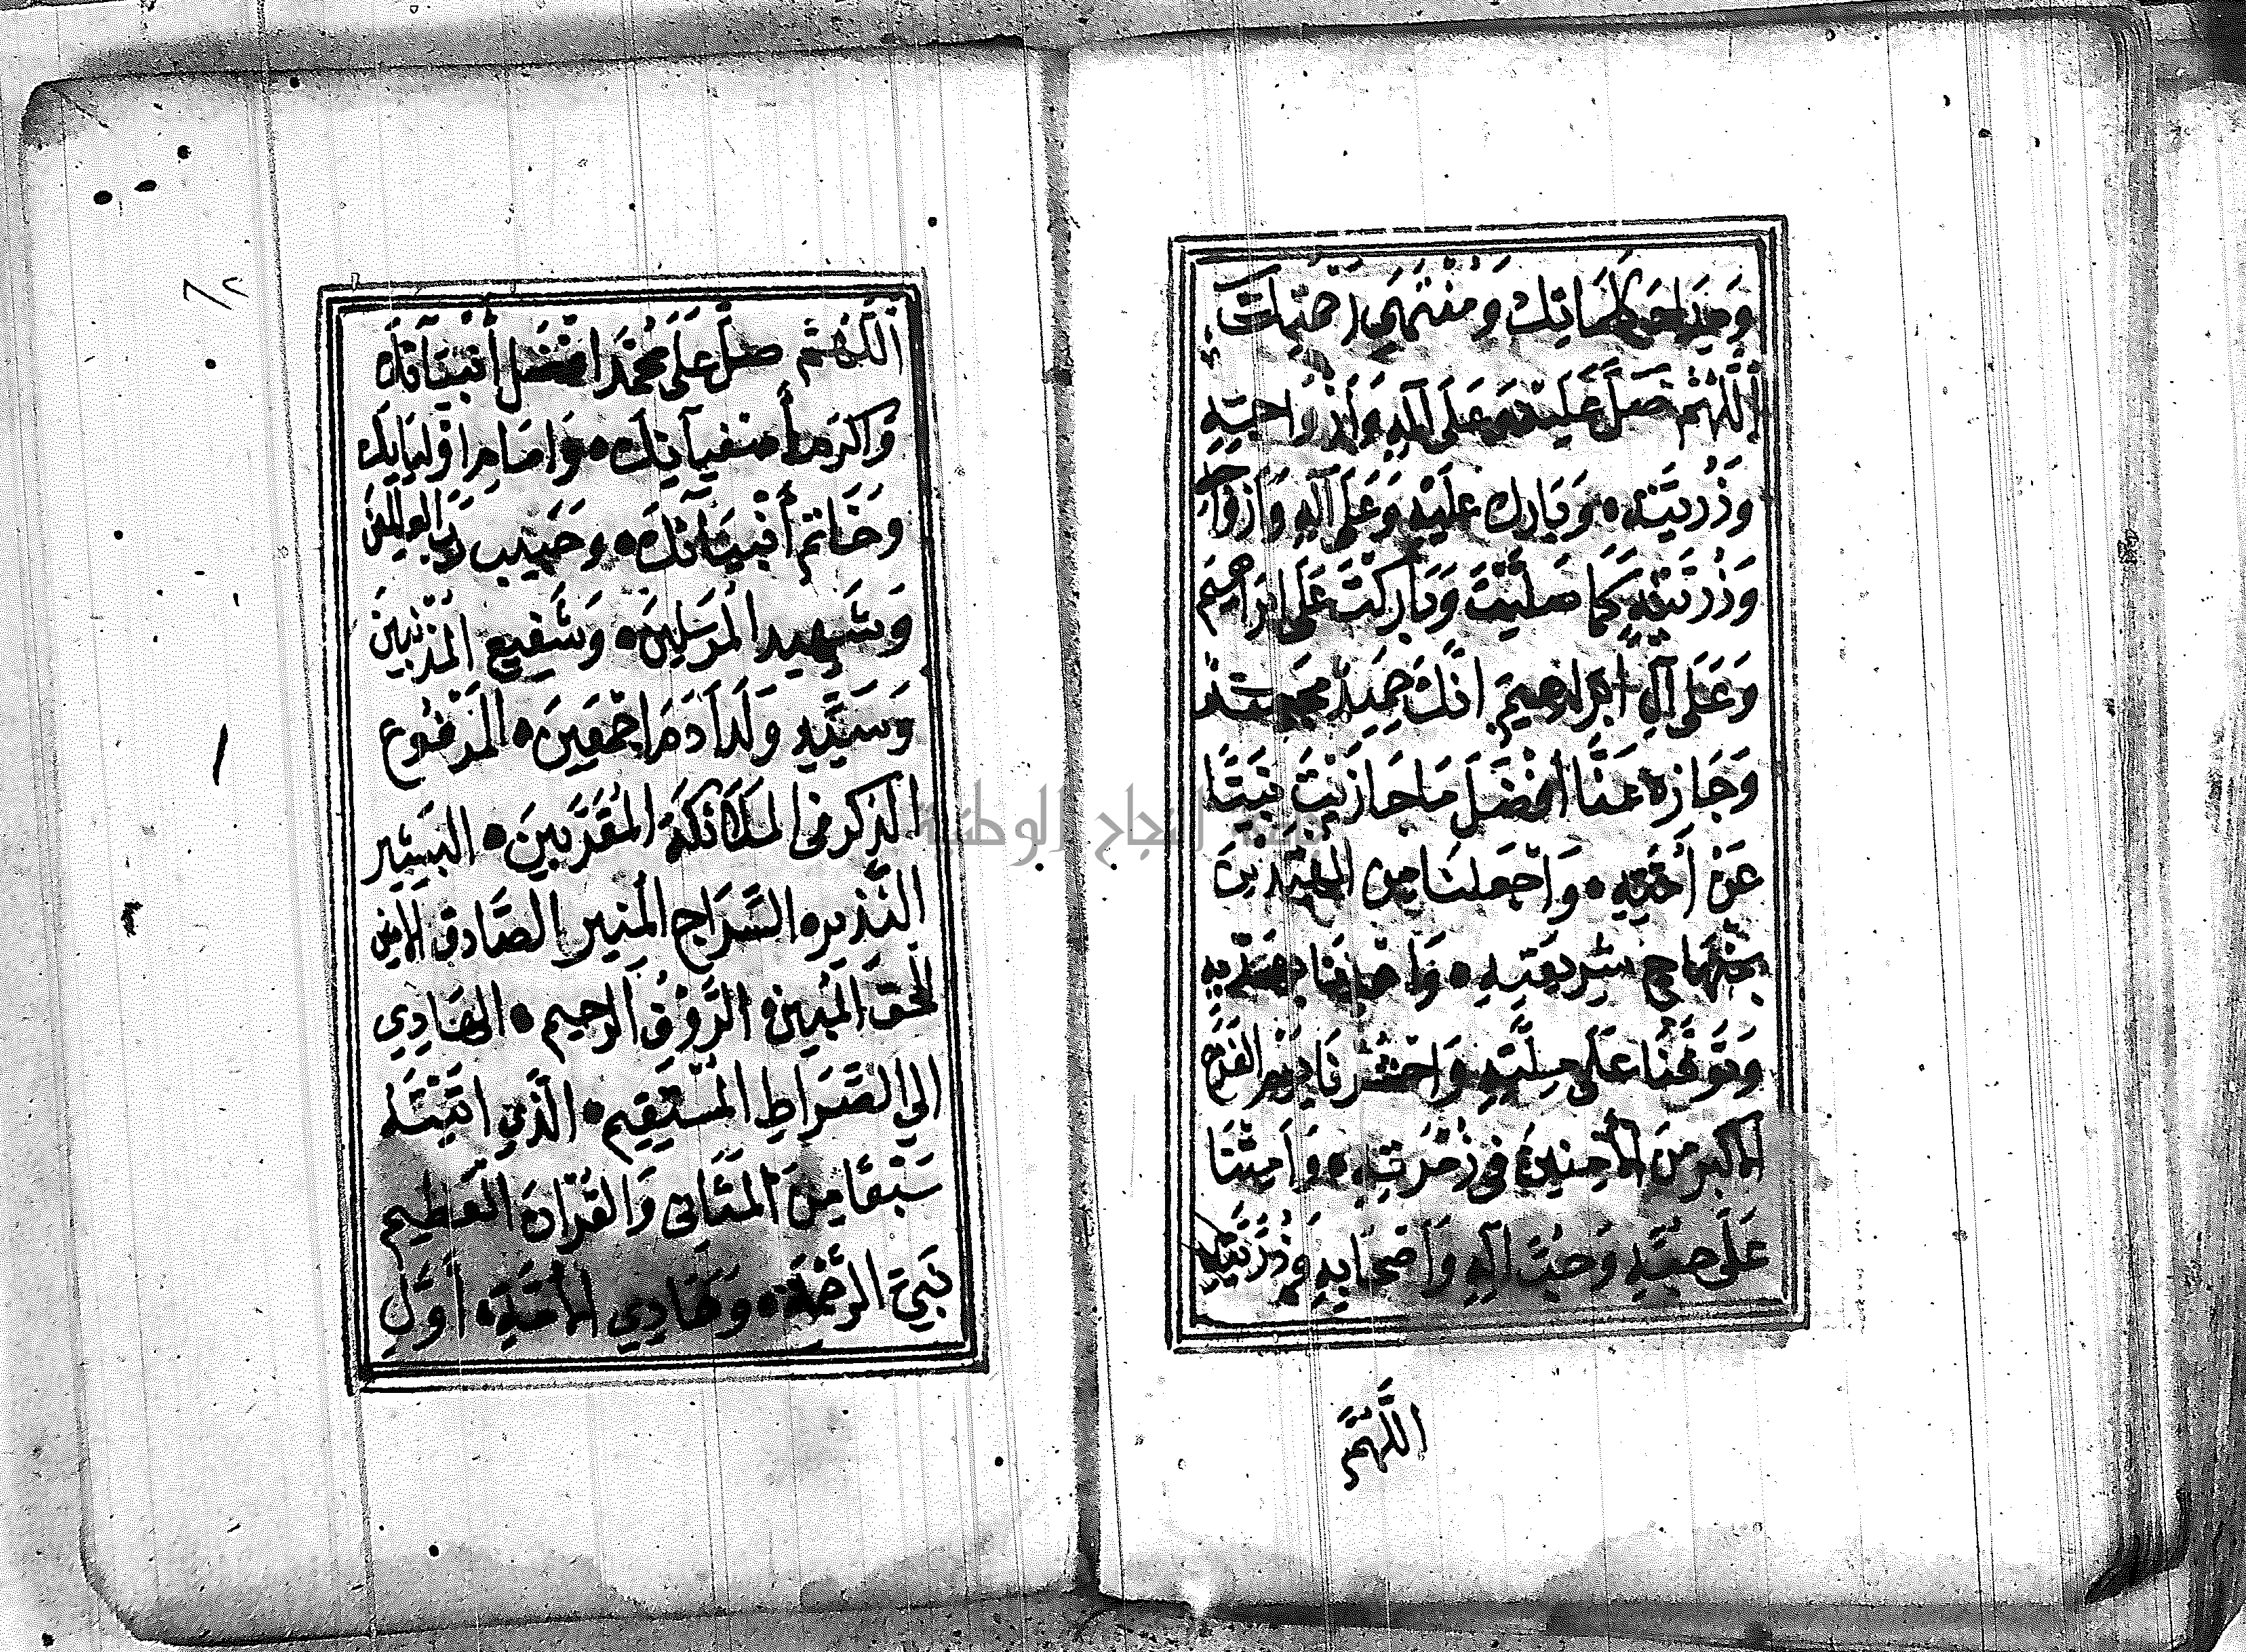 وَمِدَادَ كَلِمَاتِكَ وَمُنْتَهَى رَحْمَتِكَ
اَللّٰهُمَّ صَلِّ عَلَيْهِ وَعَلَى آلِهِ وَأَزْوَاجِهِ
وَذُرِّيَّتِهِ وَبَارِك عَلَيْهِ وَعَلَى آلِهِ وَأَزْوَاجِهِ
وَذُرِّيَّتِهِ كَمَا صَلَّيْتَ وَبَارَكْتَ عَلَى اِبْرَاهِيمَ
وَعَلَى آلِ اِبْرَاهِيمَ اِنَّكَ حَمِيدٌ مَجِيدٌ
وَجَازِهِ عَنَّا أَفْضَلَ مَا جَازَيْتَ نَبِيًّا
عَنْ أُمَّتِهِ وَاجْعَلْنَا مِنَ الْمُهْتَدِينَ
بِمِنْهَاجِ شَرِيعَتِهِ وَاهْدِنَا بِهَدْيِهِ
وَتَوَفَّنَا عَلَى مِلَّتِهِ وَاحْشُرْنَا يَوْمَ الْفَزَعِ
الأَكْبَرِ مِنَ الآمِنِينَ فِي زُمْرَتِهِ وَأَمِتْنَا
عَلَى حُبِّهِ وَحُبِّ آلِهِ وَأَصْحَابِهِ وَذُرِّيَّتِهِ
اللَّهُمَّ
٦٢
اَللّٰهُمَّ صَلِّ عَلَى مُحَمَّدٍ اَفْضَلِ أَنْبِيَآئِكَ
وَاَكْرَمِ أَصْفِيَآئِكَ وَاِمَامِ اَوْلِيَائِكَ
وَخَاتَمِ أَنْبِيَائِكَ وَحَبِيبِ رَبِّ الْعَالَمِينَ
وَشَهِيدِ الْمُرْسَلِينَ وَشَفِيعِ الْمُذْنِبِينَ
وَسَيِّدِ وَلَدِ آدَمَ اَجْمَعِينَ الْمَرْفُوعِ
الذِّكْرِ فِي الْمَلَآئِكَةِ الْمُقَرَّبِينَ الْبَشِيرِ
النَّذِيرِ السِّرَاجِ الْمُنِيرِ الصَّادِقِ الأَمِينِ
الْحَقِّ الْمُبِينِ الرَّؤُفِ الرَّحِيمِ الْهَادِي
اِلَى الصِّرَاطِ الْمُسْتَقِيمِ الَّذِي اَتَيْتَهُ
سَبْعًا مِنَ الْمَثَانِي وَالْقُرْآنَ الْعَظِيمَ
نَبِيِّ الرَّحْمَةِ وَهَادِي الأُمَّةِ أَوَّلِ
جامعة النجاح الوطنية